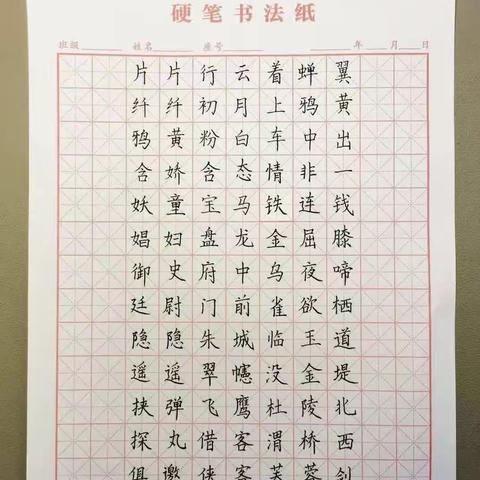 硬笔书法纸
班级 姓名 座号 年 月 日
片片行云着蝉翼
纤纤初月上鸦黄
鸦黄粉白车中出
含娇含态情非一
妖童宝马铁连钱
娼妇盘龙金屈膝
御史府中乌夜啼
廷尉门前雀欲栖
隐隐朱城临玉道
遥遥翠幰没金堤
挟弹飞鹰杜陵北
探丸借客渭桥西
俱邀侠客芙蓉剑